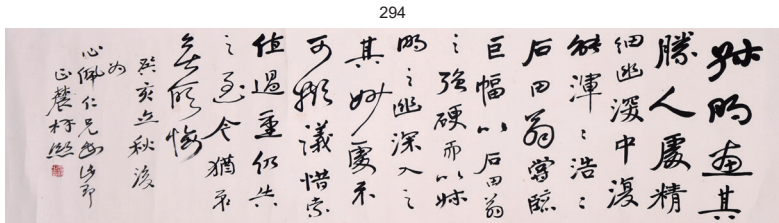 294
叔明画其
勝人處精
細幽深中復
能渾〻浩〻
石田翁嘗臨
巨幅以石田翁
之強硬而以叔
明之幽深入之
其妙處不
可擬議惜索
值過重仍失
之至今猶
悔
癸亥立秋後
為
心佩仁兄
正